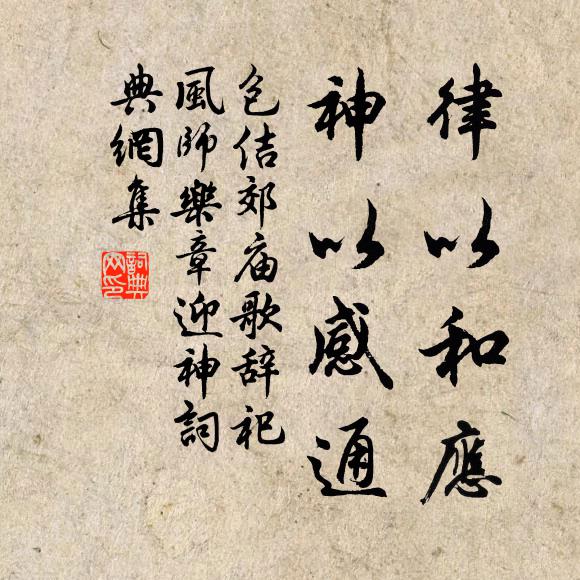 律以和應
神以感通
包佶郊庙歌辞祀
風师樂章迎神詞
典網集
詞典网印